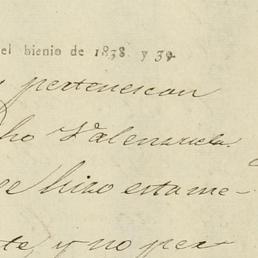 el bienio de 1838 y 39
pertenescan
ho Valenzuela.
se hizo esta me-
te, y no per